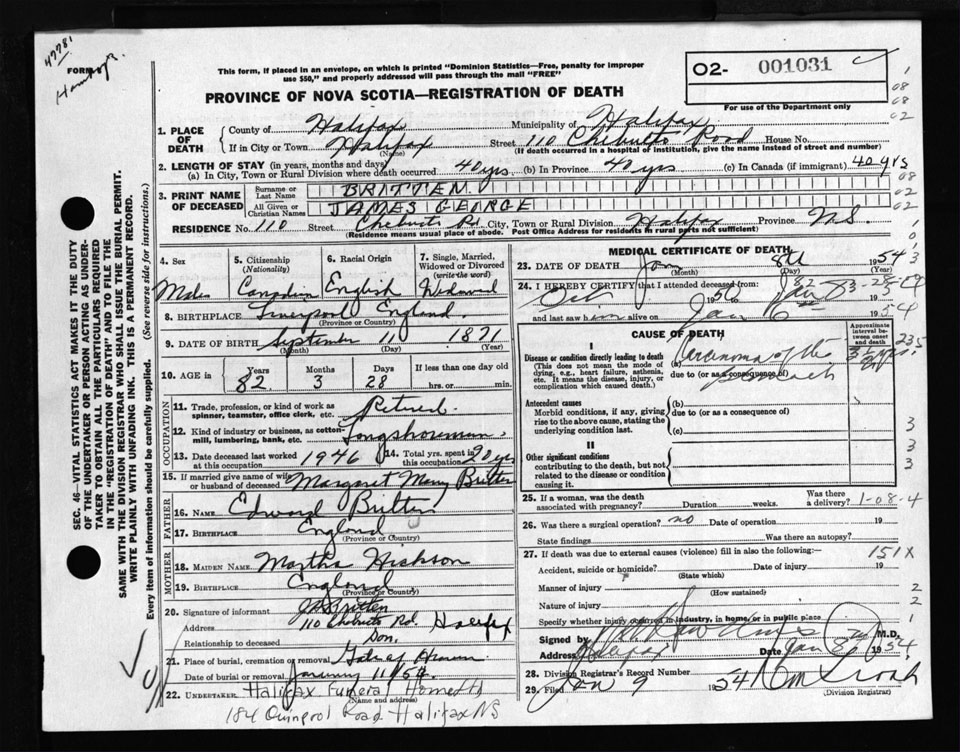 47781
FORM 6
This form, if placed in an envelope, on which is printed "Dominion Statistics—Free, penalty for improper
use $50," and properly addressed will pass through the mail "FREE"
O2- 001031
For use of the Department only
PROVINCE OF NOVA SCOTIA—REGISTRATION OF DEATH
1. PLACE OF DEATH County of Halifax Municipality of Halifax
If in City or Town Halifax (Name) Street 110 Chebucto Road House No.
(If death occurred in a hospital or institution, give the name instead of street and number)
2. LENGTH OF STAY (in years, months and days)
(a) In City, Town or Rural Division where death occurred 40 yrs. (b) In Province 40 yrs (c) In Canada (if immigrant) 40 yrs
3. PRINT NAME OF DECEASED Surname or Last Name BRITTEN
All Given or Christian Names JAMES GEORGE
RESIDENCE No. 110 Street Chebucto Rd. City, Town or Rural Division Halifax Province N.S.
(Residence means usual place of abode. Post Office Address for residents in rural parts not sufficient)
4. Sex 5. Citizenship (Nationality) 6. Racial Origin 7. Single, Married, Widowed or Divorced (write the word)
Male Canadian English Widowed
8. BIRTHPLACE Liverpool England.
(Province or Country)
9. DATE OF BIRTH September 11 1871
(Month) (Day) (Year)
10. AGE in Years Months Days If less than one day
82 3 28 hrs. or min.
OCCUPATION
11. Trade, profession, or kind of work as spinner, teamster, office clerk, etc. Retired.
12. Kind of industry or business, as cotton-mill, lumbering, bank, etc. Longshoreman.
13. Date deceased last worked at this occupation 1946 14. Total yrs. spent in this occupation 20 yrs
15. If married give name of wife or husband of deceased Margaret Mary Britten
FATHER
16. Name Edward Britten
17. BIRTHPLACE England
(Province or Country)
MOTHER
18. MAIDEN NAME Martha Hickson
19. BIRTHPLACE England
(Province or Country)
20. Signature of informant Britten
Address 110 Chebucto Rd. Halifax
Relationship to deceased Son.
21. Place of burial, cremation or removal Gate of Heaven
Date of burial or removal January 11/54
22. UNDERTAKER Halifax Funeral Home
(Name and address)
184 Quinpool Road Halifax NS
MEDICAL CERTIFICATE OF DEATH
23. DATE OF DEATH Jan 8th 1954
(Month) (Day) (Year)
24. I HEREBY CERTIFY that I attended deceased from:
Oct 1950 to Jan 8 19
and last saw h alive on Jan 6 1954
CAUSE OF DEATH
Approximate interval between onset and death
I
Disease or condition directly leading to death (a) Carcinoma of the
(This does not mean the mode of dying, e.g., heart failure, asthenia, etc. It means the disease, injury, or complication which caused death.)
due to (or as a consequence of) Stomach
Antecedent causes (b)
Morbid conditions, if any, giving rise to the above cause, stating the underlying condition last.
due to (or as a consequence of)
(c)
II
Other significant conditions
contributing to the death, but not related to the disease or condition causing it.
25. If a woman, was the death associated with pregnancy? Duration weeks. Was there a delivery? 1-08-4
26. Was there a surgical operation? no Date of operation 19
State findings Was there an autopsy?
27. If death was due to external causes (violence) fill in also the following:— 151X
Accident, suicide or homicide? Date of injury 19
(State which)
Manner of injury
(How sustained)
Nature of injury
Specify whether injury occurred in industry, in home, or in public place
Signed by M.D.
Address Halifax Date Jan 1954
28. Division Registrar's Record Number
29. Filed Jan 9 1954
(Division Registrar)
SEC. 46—VITAL STATISTICS ACT MAKES IT THE DUTY
OF THE UNDERTAKER OR PERSON ACTING AS UNDER-
TAKER TO OBTAIN ALL THE PARTICULARS REQUIRED
IN THE "REGISTRATION OF DEATH" AND TO FILE THE
SAME WITH THE DIVISION REGISTRAR WHO SHALL ISSUE THE BURIAL PERMIT.
WRITE PLAINLY WITH UNFADING INK. THIS IS A PERMANENT RECORD.
Every item of information should be carefully supplied. (See reverse side for instructions.)